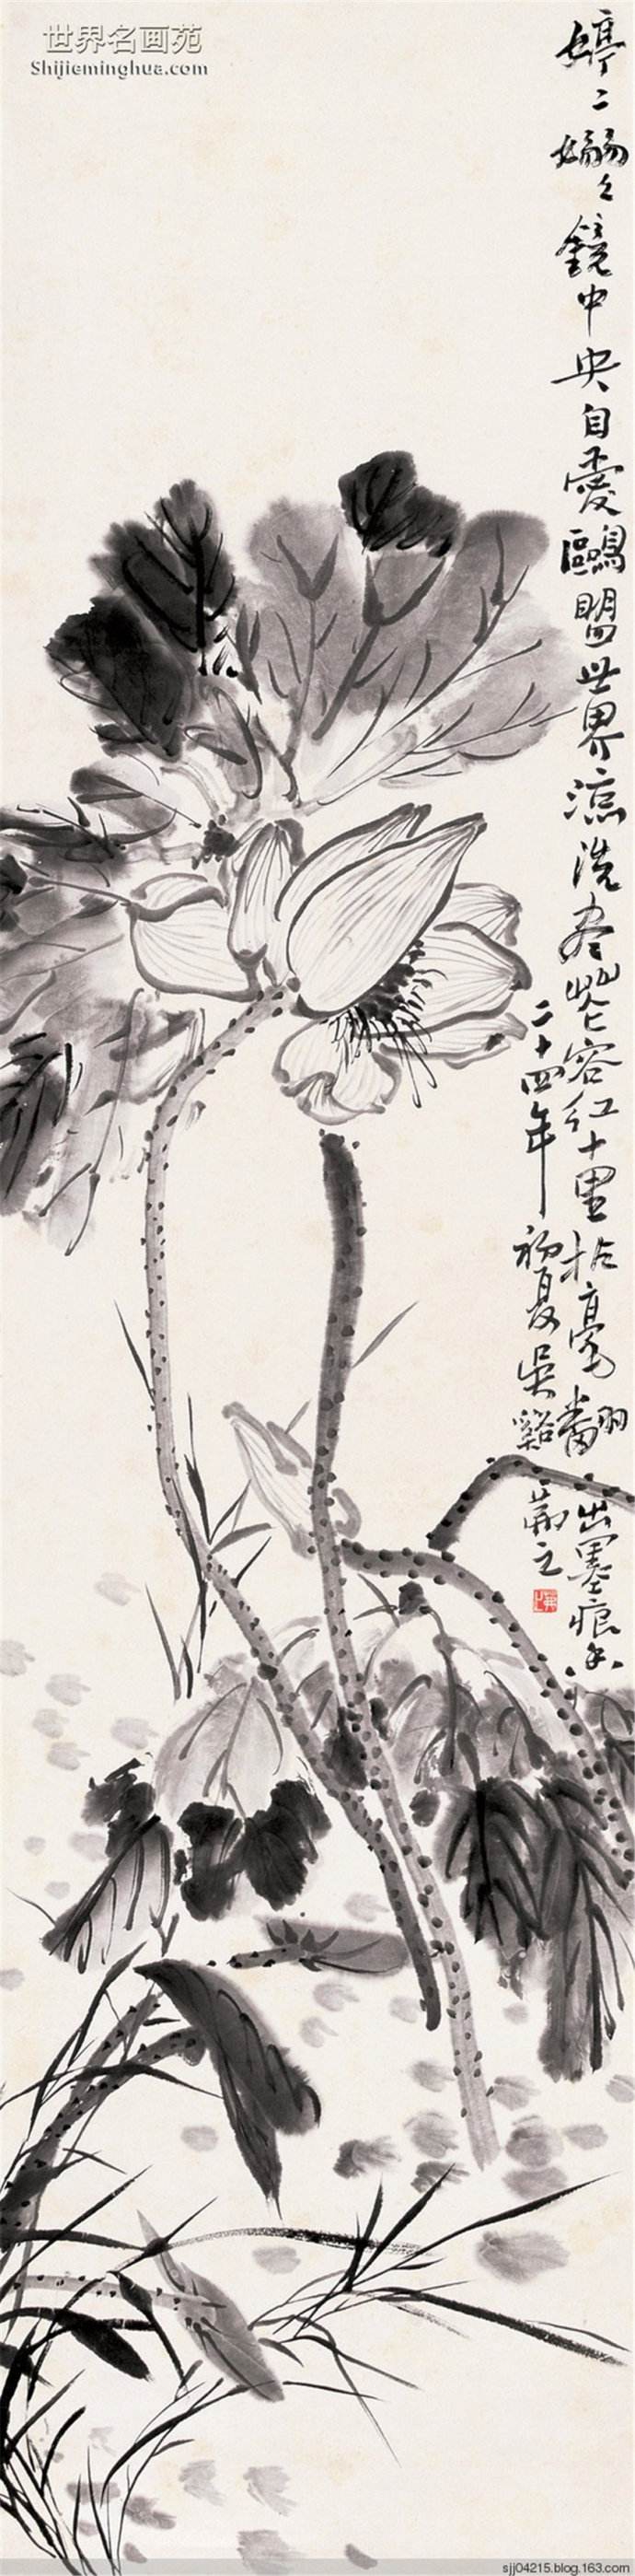 世界名画苑
Shijieminghua.com
婷二嫋々鏡中央自愛鷗盟世界涼洗尽花容红十里拈毫翻出墨痕香
二十四年初夏吴谿茀之
sjj04215.blog.163.com